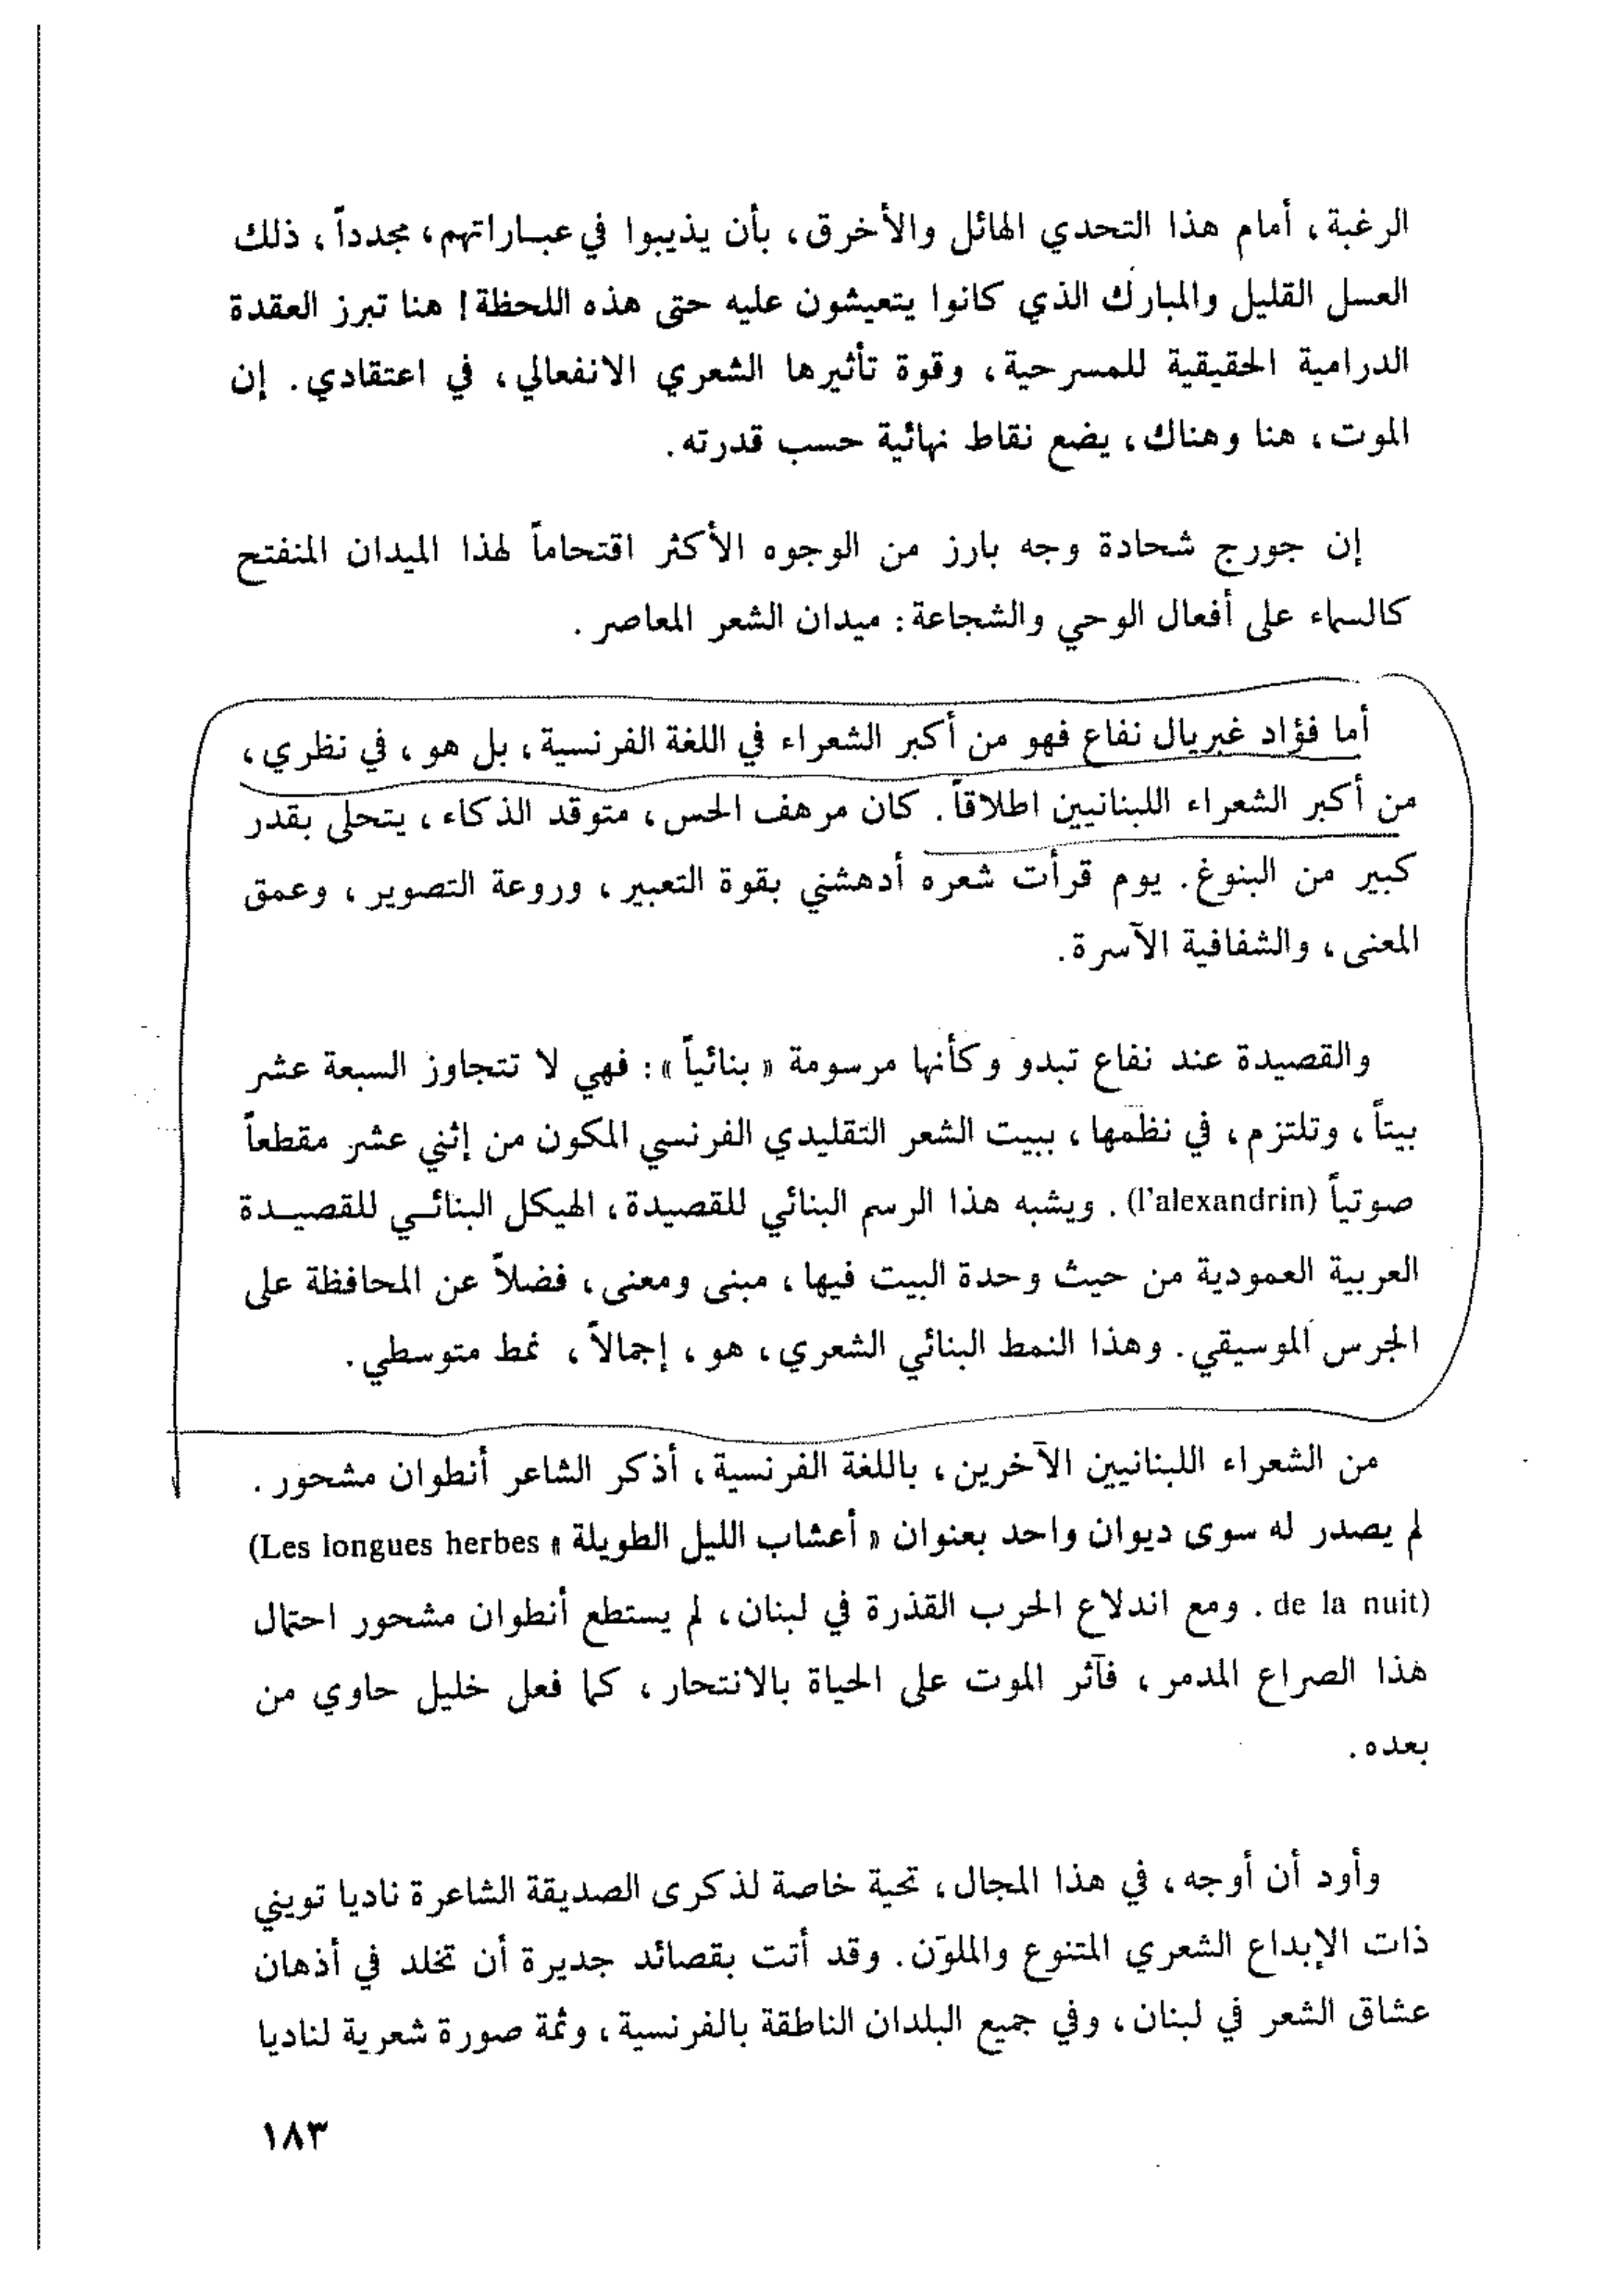 الرغبة، أمام هذا التحدي الهائل والأخرق، بأن يذيبوا في عباراتهم، مجدداً، ذلك
العسل القليل والمبارك الذي كانوا يتعيشون عليه حتى هذه اللحظة! هنا تبرز العقدة
الدرامية الحقيقية للمسرحية، وقوة تأثيرها الشعري الانفعالي، في اعتقادي. إن
الموت، هنا وهناك، يضع نقاط نهائية حسب قدرته.
إن جورج شحادة وجه بارز من الوجوه الأكثر اقتحاماً لهذا الميدان المنفتح
كالسماء على أفعال الوحي والشجاعة: ميدان الشعر المعاصر.
أما فؤاد غبريال نفاع فهو من أكبر الشعراء في اللغة الفرنسية، بل هو، في نظري،
من أكبر الشعراء اللبنانيين اطلاقاً. كان مرهف الحس، متوقد الذكاء، يتحلى بقدر
كبير من النبوغ. يوم قرأت شعره أدهشني بقوة التعبير، وروعة التصوير، وعمق
المعنى، والشفافية الآسرة.
والقصيدة عند نفاع تبدو وكأنها مرسومة «بنائياً»: فهي لا تتجاوز السبعة عشر
بيتاً، وتلتزم، في نظمها، ببيت الشعر التقليدي الفرنسي المكون من إثني عشر مقطعاً
صوتياً (l'alexandrin). ويشبه هذا الرسم البنائي للقصيدة، الهيكل البنائي للقصيدة
العربية العمودية من حيث وحدة البيت فيها، مبنى ومعنى، فضلاً عن المحافظة على
الجرس الموسيقي. وهذا النمط البنائي الشعري، هو، إجمالاً، نمط متوسطي.
من الشعراء اللبنانيين الآخرين، باللغة الفرنسية، أذكر الشاعر أنطوان مشحور.
لم يصدر له سوى ديوان واحد بعنوان «أعشاب الليل الطويلة» (Les longues herbes
de la nuit). ومع اندلاع الحرب القذرة في لبنان، لم يستطع أنطوان مشحور احتمال
هذا الصراع المدمر، فآثر الموت على الحياة بالانتحار، كما فعل خليل حاوي من
بعده.
وأود أن أوجه، في هذا المجال، تحية خاصة لذكرى الصديقة الشاعرة ناديا تويني
ذات الإبداع الشعري المتنوع والملوّن. وقد أتت بقصائد جديرة أن تخلد في أذهان
عشاق الشعر في لبنان، وفي جميع البلدان الناطقة بالفرنسية، وثمة صورة شعرية لناديا
١٨٣